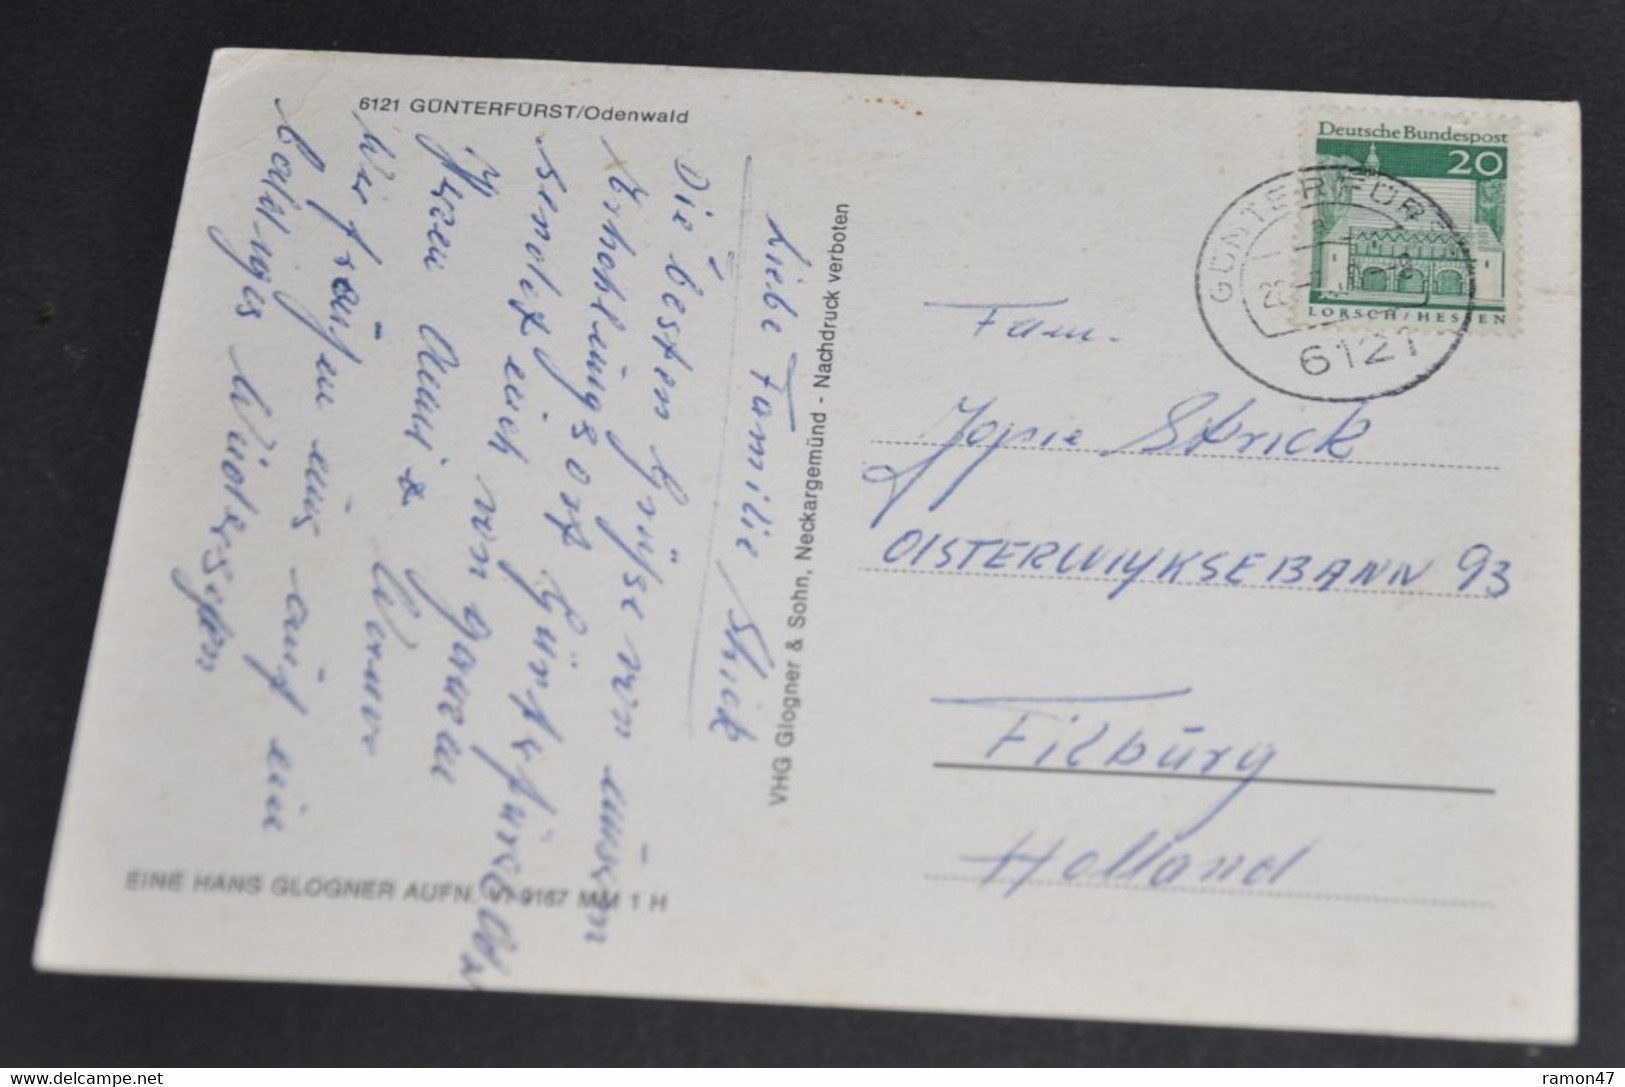 6121 GÜNTERFÜRST/Odenwald
Liebe Familie Strick
Die besten Grüsse von unserm
Erholungsort Günterfürst
sendet euch von ganzen
Herzen Anni &
Wir freuen uns auf ein
baldiges Wiedersehen
VHG Glogner & Sohn, Neckargemünd - Nachdruck verboten
EINE HANS GLOGNER AUFN. VI 9167 MM 1 H
Deutsche Bundespost
20
LORSCH/HESSEN
GÜNTERFÜRST
6121
Fam.
Jopie Strick
OISTERWIYKSEBANN 93
Tilburg
Holland
ramon47